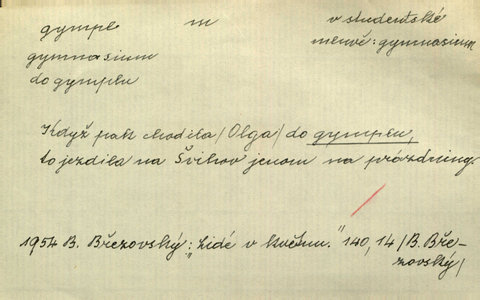 gympl m v studentské
gymnasium mluvě: gymnasium
do gymplu
Když pak chodila /Olga/ do gymplu,
to jezdila na Švihov jenom na prázdniny.
1954 B. Březovský: „Lidé v květnu." 140, 14 /B. Bře-
zovský/